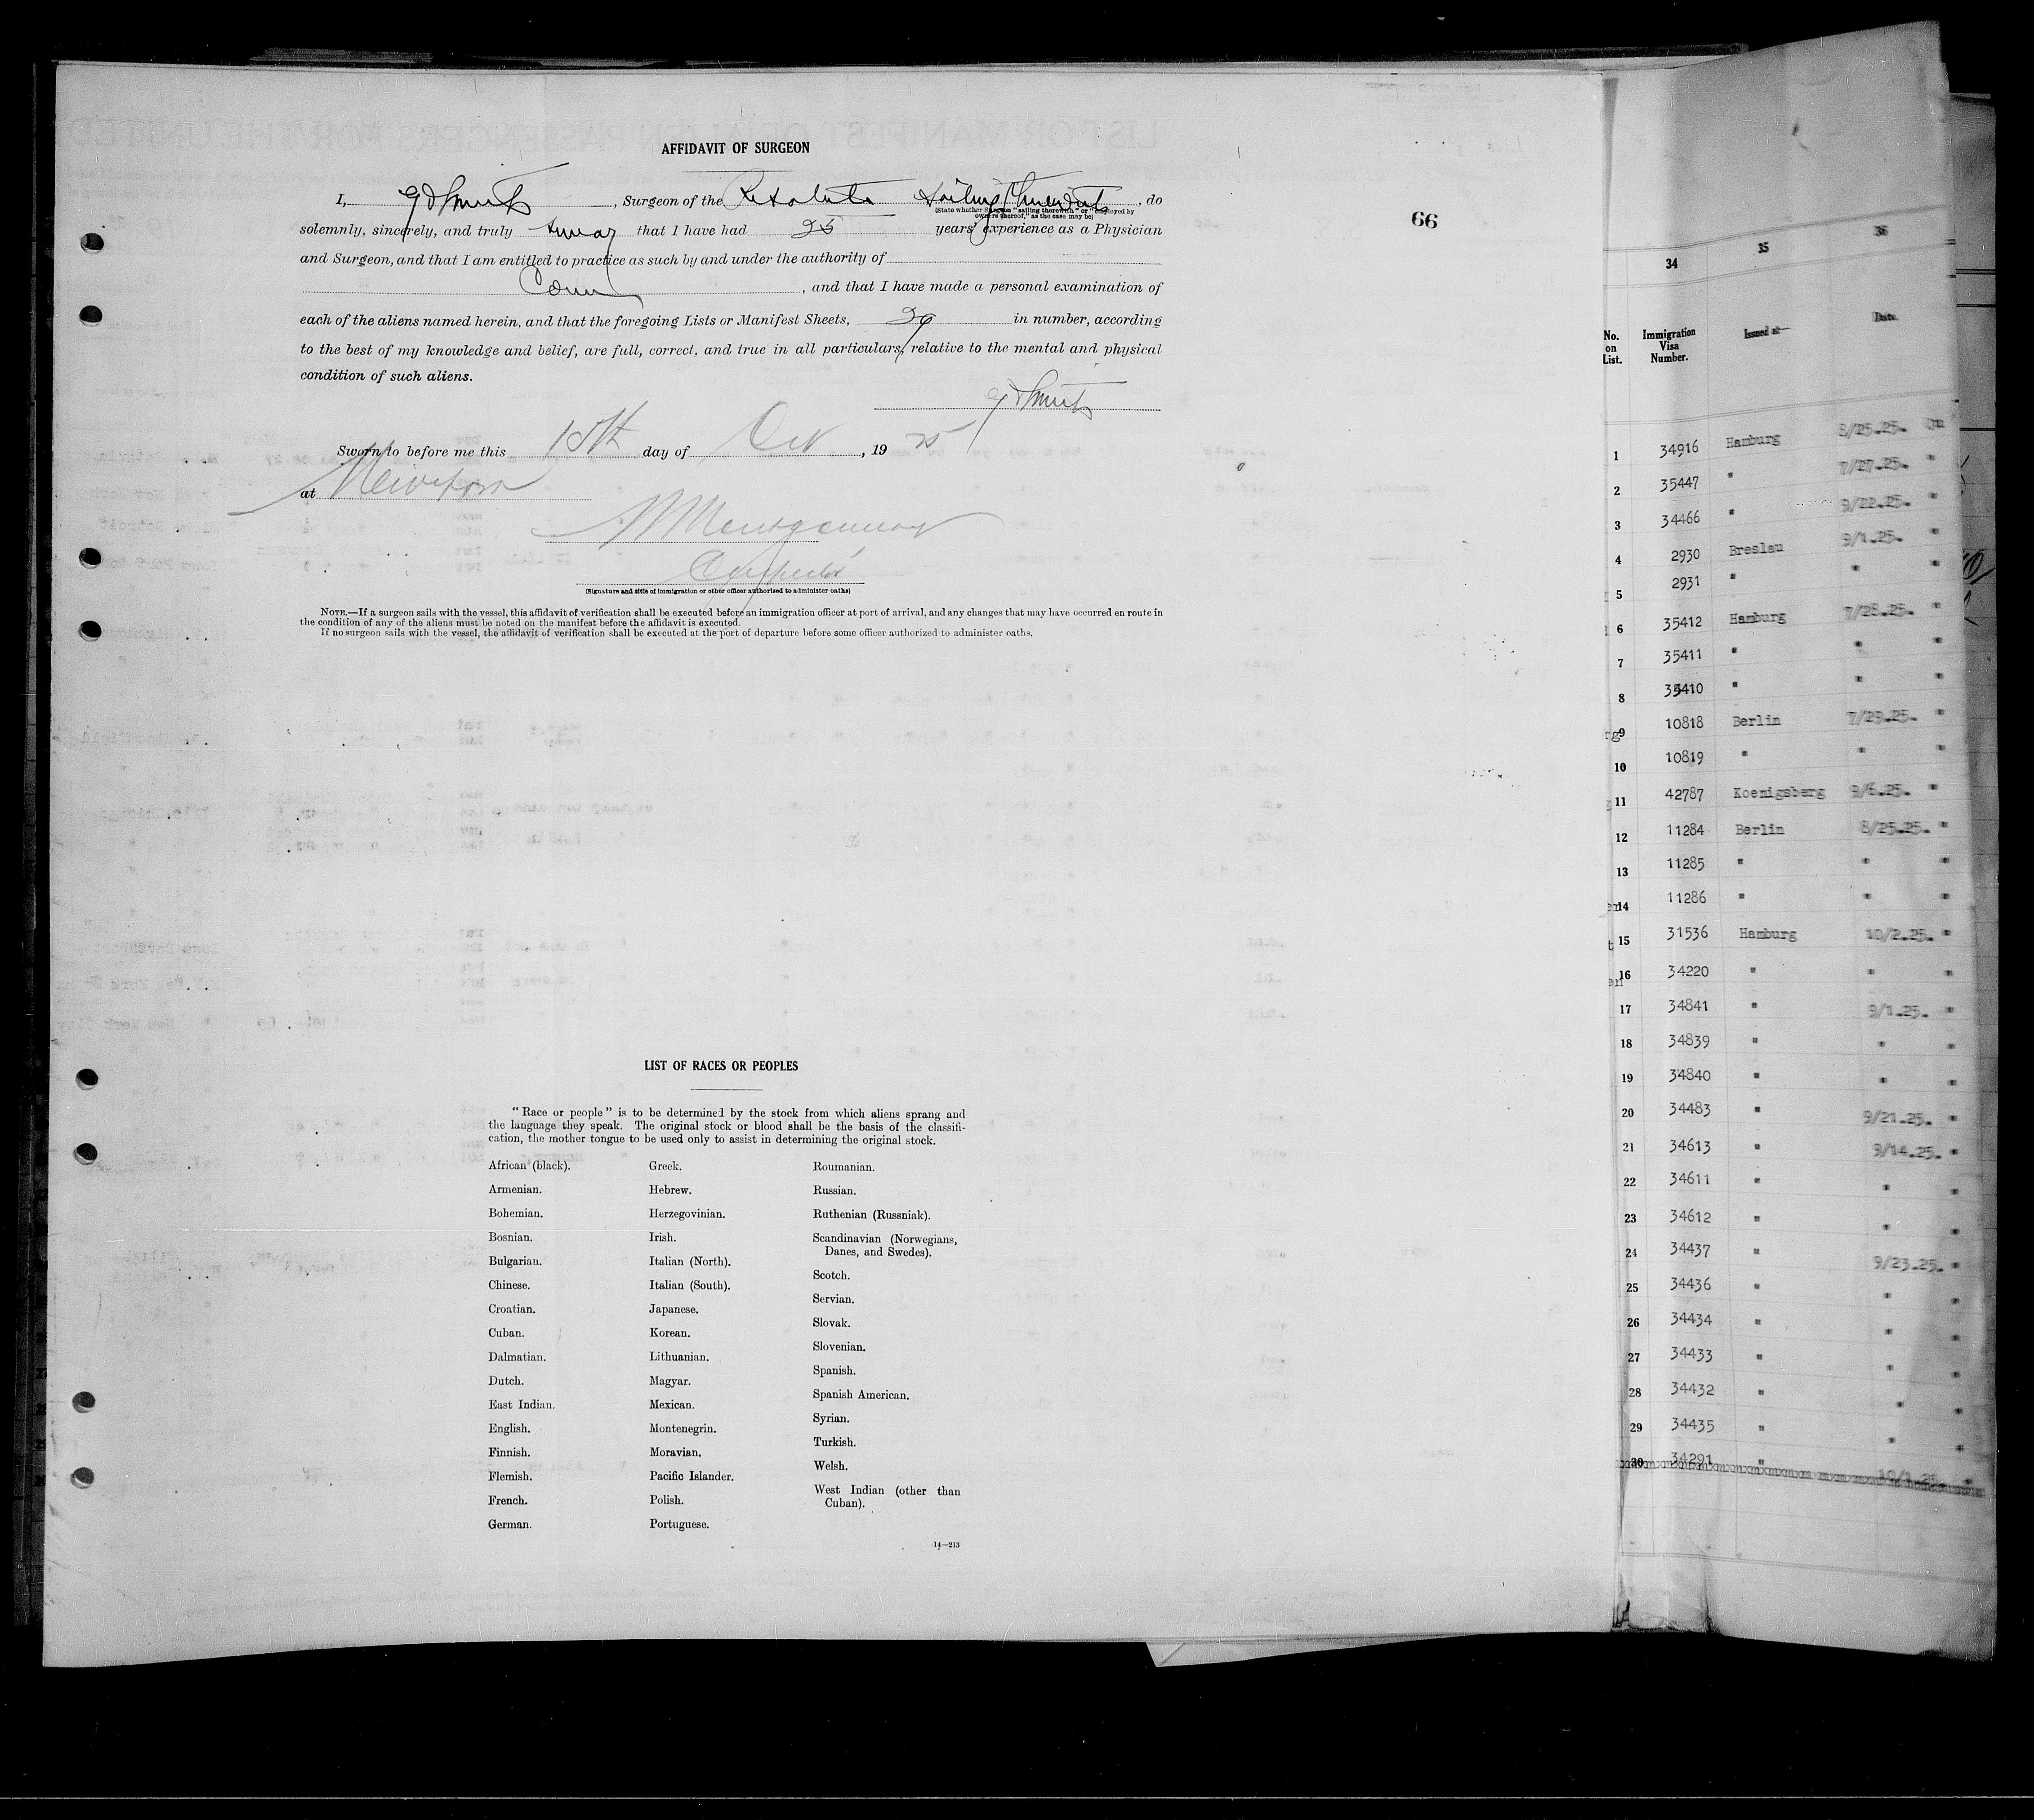 AFFIDAVIT OF SURGEON
I, G D Smith, Surgeon of the Resolute Sailing Therewith, do
(State whether Surgeon "sailing therewith" or "employed by
owners thereof," as the case may be)
solemnly, sincerely, and truly swear that I have had 25 years' experience as a Physician
and Surgeon, and that I am entitled to practice as such by and under the authority of
Conn, and that I have made a personal examination of
each of the aliens named herein, and that the foregoing Lists or Manifest Sheets, 29 in number, according
to the best of my knowledge and belief, are full, correct, and true in all particulars, relative to the mental and physical
condition of such aliens.
G D Smith
Sworn to before me this 15th day of Oct, 19 25
at New York
Montgomery
(Signature and title of immigration or other officer authorized to administer oaths)
NOTE.—If a surgeon sails with the vessel, this affidavit of verification shall be executed before an immigration officer at port of arrival, and any changes that may have occurred en route in
the condition of any of the aliens must be noted on the manifest before the affidavit is executed.
If no surgeon sails with the vessel, the affidavit of verification shall be executed at the port of departure before some officer authorized to administer oaths.
66
LIST OF RACES OR PEOPLES
"Race or people" is to be determined by the stock from which aliens sprang and
the language they speak. The original stock or blood shall be the basis of the classifi-
cation, the mother tongue to be used only to assist in determining the original stock.
African (black).
Armenian.
Bohemian.
Bosnian.
Bulgarian.
Chinese.
Croatian.
Cuban.
Dalmatian.
Dutch.
East Indian.
English.
Finnish.
Flemish.
French.
German.
Greek.
Hebrew.
Herzegovinian.
Irish.
Italian (North).
Italian (South).
Japanese.
Korean.
Lithuanian.
Magyar.
Mexican.
Montenegrin.
Moravian.
Pacific Islander.
Polish.
Portuguese.
Roumanian.
Russian.
Ruthenian (Russniak).
Scandinavian (Norwegians,
Danes, and Swedes).
Scotch.
Servian.
Slovak.
Slovenian.
Spanish.
Spanish American.
Syrian.
Turkish.
Welsh.
West Indian (other than
Cuban).
14—213
34 35 36
No. on List. Immigration Visa Number. Issued at— Date.
1 34916 Hamburg 8/25.25.
2 35447 " 7/27.25. "
3 34466 " 9/22.25. "
4 2930 Breslau 9/1.25. "
5 2931 " " "
6 35412 Hamburg 7/28.25. "
7 35411 " " "
8 35410 " " "
9 10818 Berlin 7/29.25. "
10 10819 " " "
11 42787 Koenigsberg 9/6.25. "
12 11284 Berlin 8/25.25. "
13 11285 " " "
14 11286 " " "
15 31536 Hamburg 10/2.25. "
16 34220 " " "
17 34841 " 9/1.25. "
18 34839 " " "
19 34840 " " "
20 34483 " 9/21.25. "
21 34613 " 9/14.25. "
22 34611 " " "
23 34612 " " "
24 34437 " 9/23.25. "
25 34436 " " "
26 34434 " " "
27 34433 " " "
28 34432 " " "
29 34435 " " "
30 34291 " 10/1.25. "